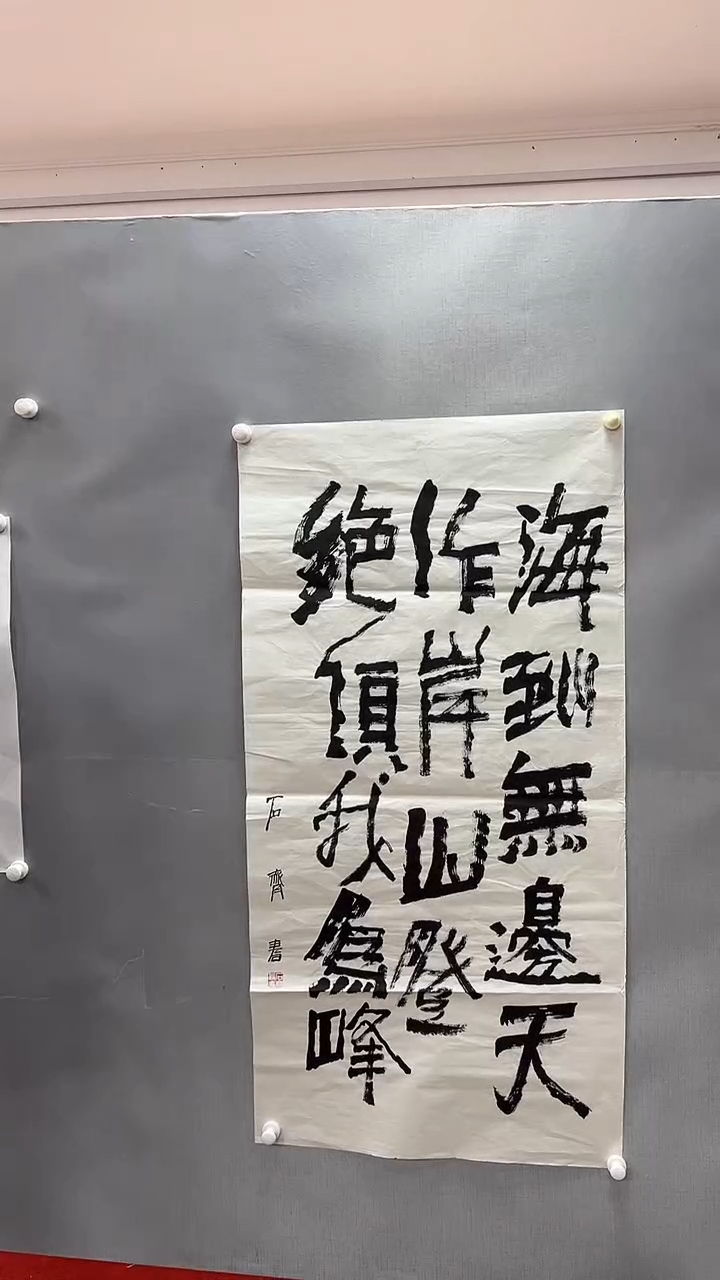 海到無邊天
作岸山登
絶頂我為峰
石齊書